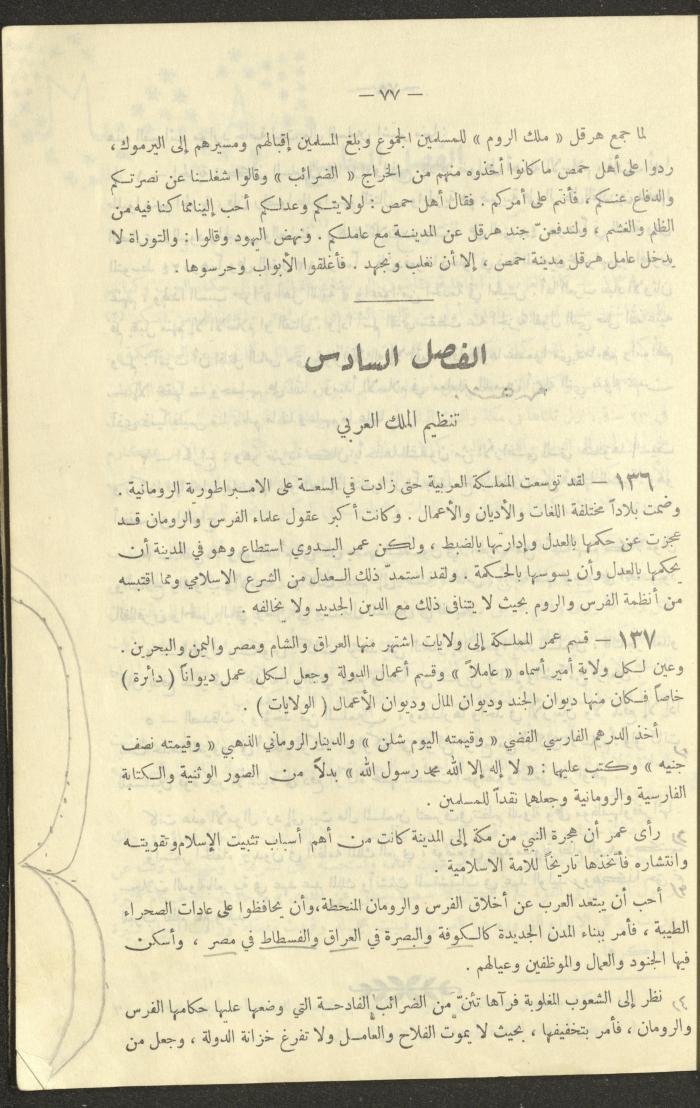 — ٧٧ —
لما جمع هرقل « ملك الروم » للمسلمين الجموع وبلغ المسلمين إقبالهم ومسيرهم إلى اليرموك ،
ردوا على أهل حمص ما كانوا أخذوه منهم من الخراج « الضرائب » وقالوا شغلنا عن نصرتكم
والدفاع عنكم ، فأنتم على أمركم . فقال أهل حمص : لولايتكم وعدلكم أحب إلينا مما كنا فيه من
الظلم والغشم ، ولندفعنّ جند هرقل عن المدينة مع عاملكم . ونهض اليهود وقالوا : والتوراة لا
يدخل عامل هرقل مدينة حمص ، إلا أن نغلب ونجهد . فأغلقوا الأبواب وحرسوها .
الفصل السادس
تنظيم الملك العربي
١٣٦ — لقد توسعت المملكة العربية حتى زادت في السعة على الامبراطورية الرومانية .
وضمت بلاداً مختلفة اللغات والأديان والأعمال . وكانت أكبر عقول علماء الفرس والرومان قد
عجزت عن حكمها بالعدل وإدارتها بالضبط ، ولكن عمر البدوي استطاع وهو في المدينة أن
يحكمها بالعدل وأن يسوسها بالحكمة . ولقد استمدّ ذلك العدل من الشرع الاسلامي ومما اقتبسه
من أنظمة الفرس والروم بحيث لا يتنافى ذلك مع الدين الجديد ولا يخالفه .
١٣٧ — قسم عمر المملكة إلى ولايات اشتهر منها العراق والشام ومصر واليمن والبحرين .
وعين لكل ولاية أمير أسماه « عاملاً » وقسم أعمال الدولة وجعل لكل عمل ديواناً ( دائرة )
خاصاً فكان منها ديوان الجند وديوان المال وديوان الأعمال ( الولايات ) .
أخذ الدرهم الفارسي الفضي « وقيمته اليوم شلن » والدينار الروماني الذهبي « وقيمته نصف
جنيه » وكتب عليهما : « لا إله إلا الله محمد رسول الله » بدلاً من الصور الوثنية والكتابة
الفارسية والرومانية وجعلهما نقداً للمسلمين .
رأى عمر أن هجرة النبي من مكة إلى المدينة كانت من أهم أسباب تثبيت الإسلام وتقويته
وانتشاره فأتخذها تاريخاً للامة الاسلامية .
أحب أن يبتعد العرب عن أخلاق الفرس والرومان المنحطة، وأن يحافظوا على عادات الصحراء
الطيبة ، فأمر ببناء المدن الجديدة كالكوفة والبصرة في العراق والفسطاط في مصر ، وأسكن
فيها الجنود والعمال والموظفين وعيالهم .
نظر إلى الشعوب المغلوبة فرآها تئنّ من الضرائب الفادحة التي وضعها عليها حكامها الفرس
والرومان ، فأمر بتخفيفها ، بحيث لا يموت الفلاح والعامل ولا تفرغ خزانة الدولة ، وجعل من